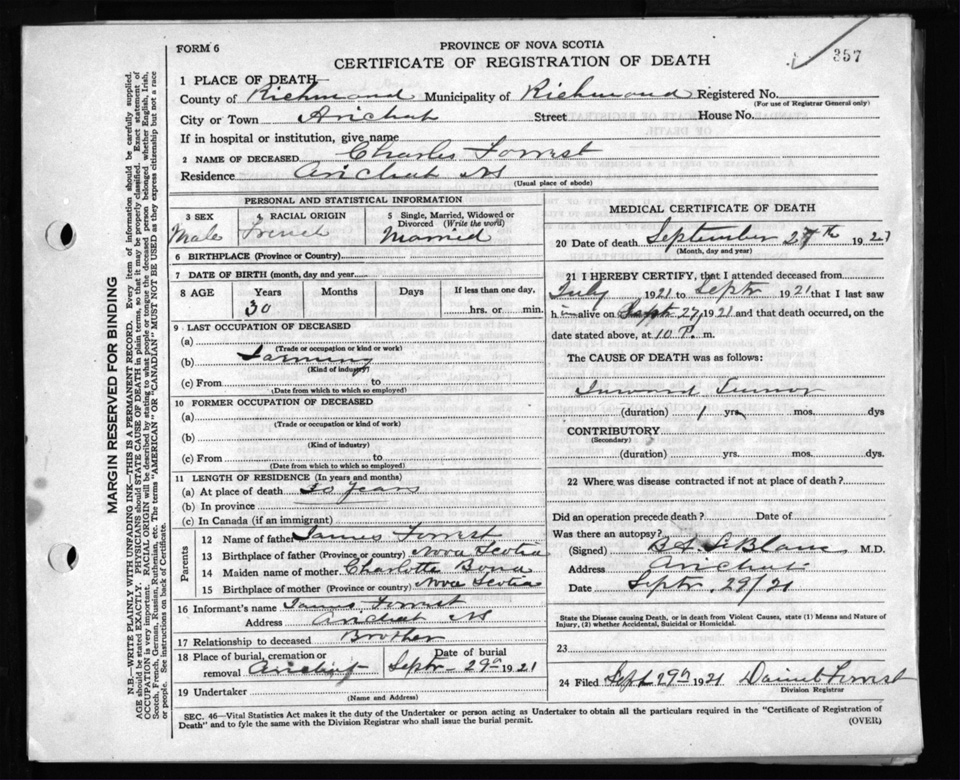 357
FORM 6
PROVINCE OF NOVA SCOTIA
CERTIFICATE OF REGISTRATION OF DEATH
1 PLACE OF DEATH
County of Richmond Municipality of Richmond Registered No.
(For use of Registrar General only)
City or Town Arichat Street House No.
If in hospital or institution, give name
2 NAME OF DECEASED Charles Forrest
Residence Arichat NS
(Usual place of abode)
PERSONAL AND STATISTICAL INFORMATION
3 SEX 4 RACIAL ORIGIN 5 Single, Married, Widowed or Divorced (Write the word)
Male French Married
6 BIRTHPLACE (Province or Country)
7 DATE OF BIRTH (month, day and year)
8 AGE Years Months Days If less than one day,
30 hrs. or min.
9 LAST OCCUPATION OF DECEASED
(a)
(Trade or occupation or kind or work)
(b) Farming
(Kind of industry)
(c) From to
(Date from which to which so employed)
10 FORMER OCCUPATION OF DECEASED
(a)
(Trade or occupation or kind of work)
(b)
(Kind of industry)
(c) From to
(Date from which to which so employed)
11 LENGTH OF RESIDENCE (In years and months)
(a) At place of death 30 years
(b) In province
(c) In Canada (if an immigrant)
Parents
12 Name of father James Forrest
13 Birthplace of father (Province or country) Nova Scotia
14 Maiden name of mother Charlotte Bond
15 Birthplace of mother (Province or country) Nova Scotia
16 Informant's name James Forrest
Address Arichat NS
17 Relationship to deceased Brother
18 Place of burial, cremation or removal Arichat Date of burial Septr 29th 1921
19 Undertaker
(Name and Address)
MEDICAL CERTIFICATE OF DEATH
20 Date of death September 27th 1921
(Month, day and year)
21 I HEREBY CERTIFY, that I attended deceased from
July 1921 to Septr 1921 that I last saw
him alive on Sept 27 1921 and that death occurred, on the
date stated above, at 10 P. m.
The CAUSE OF DEATH was as follows:
Inward Tumor
(duration) 1 yrs. mos. dys
CONTRIBUTORY
(Secondary)
(duration) yrs. mos. dys.
22 Where was disease contracted if not at place of death?
Did an operation precede death? Date of
Was there an autopsy?
(Signed) LeBlanc M.D.
Address Arichat
Date Septr. 29/21
State the Disease causing Death, or in death from Violent Causes, state (1) Means and Nature of Injury, (2) whether Accidental, Suicidal or Homicidal.
23
24 Filed Sept 29th 1921 Daniel Forrest
Division Registrar
SEC. 46—Vital Statistics Act makes it the duty of the Undertaker or person acting as Undertaker to obtain all the particulars required in the "Certificate of Registration of
Death" and to fyle the same with the Division Registrar who shall issue the burial permit.
(OVER)
MARGIN RESERVED FOR BINDING
N.B.—WRITE PLAINLY WITH UNFADING INK—THIS IS A PERMANENT RECORD. Every item of information should be carefully supplied.
AGE should be stated EXACTLY. PHYSICIANS should STATE CAUSE OF DEATH in plain terms, so that it may be properly classified. Exact statement of
OCCUPATION is very important. RACIAL ORIGIN will be described by stating to what people or tongue the deceased person belonged whether English, Irish,
Scotch, French, German, Russian, Ruthenian, etc. The terms "AMERICAN" OR "CANADIAN" MUST NOT BE USED as they express citizenship but not a race
or people. See instructions on back of Certificate.